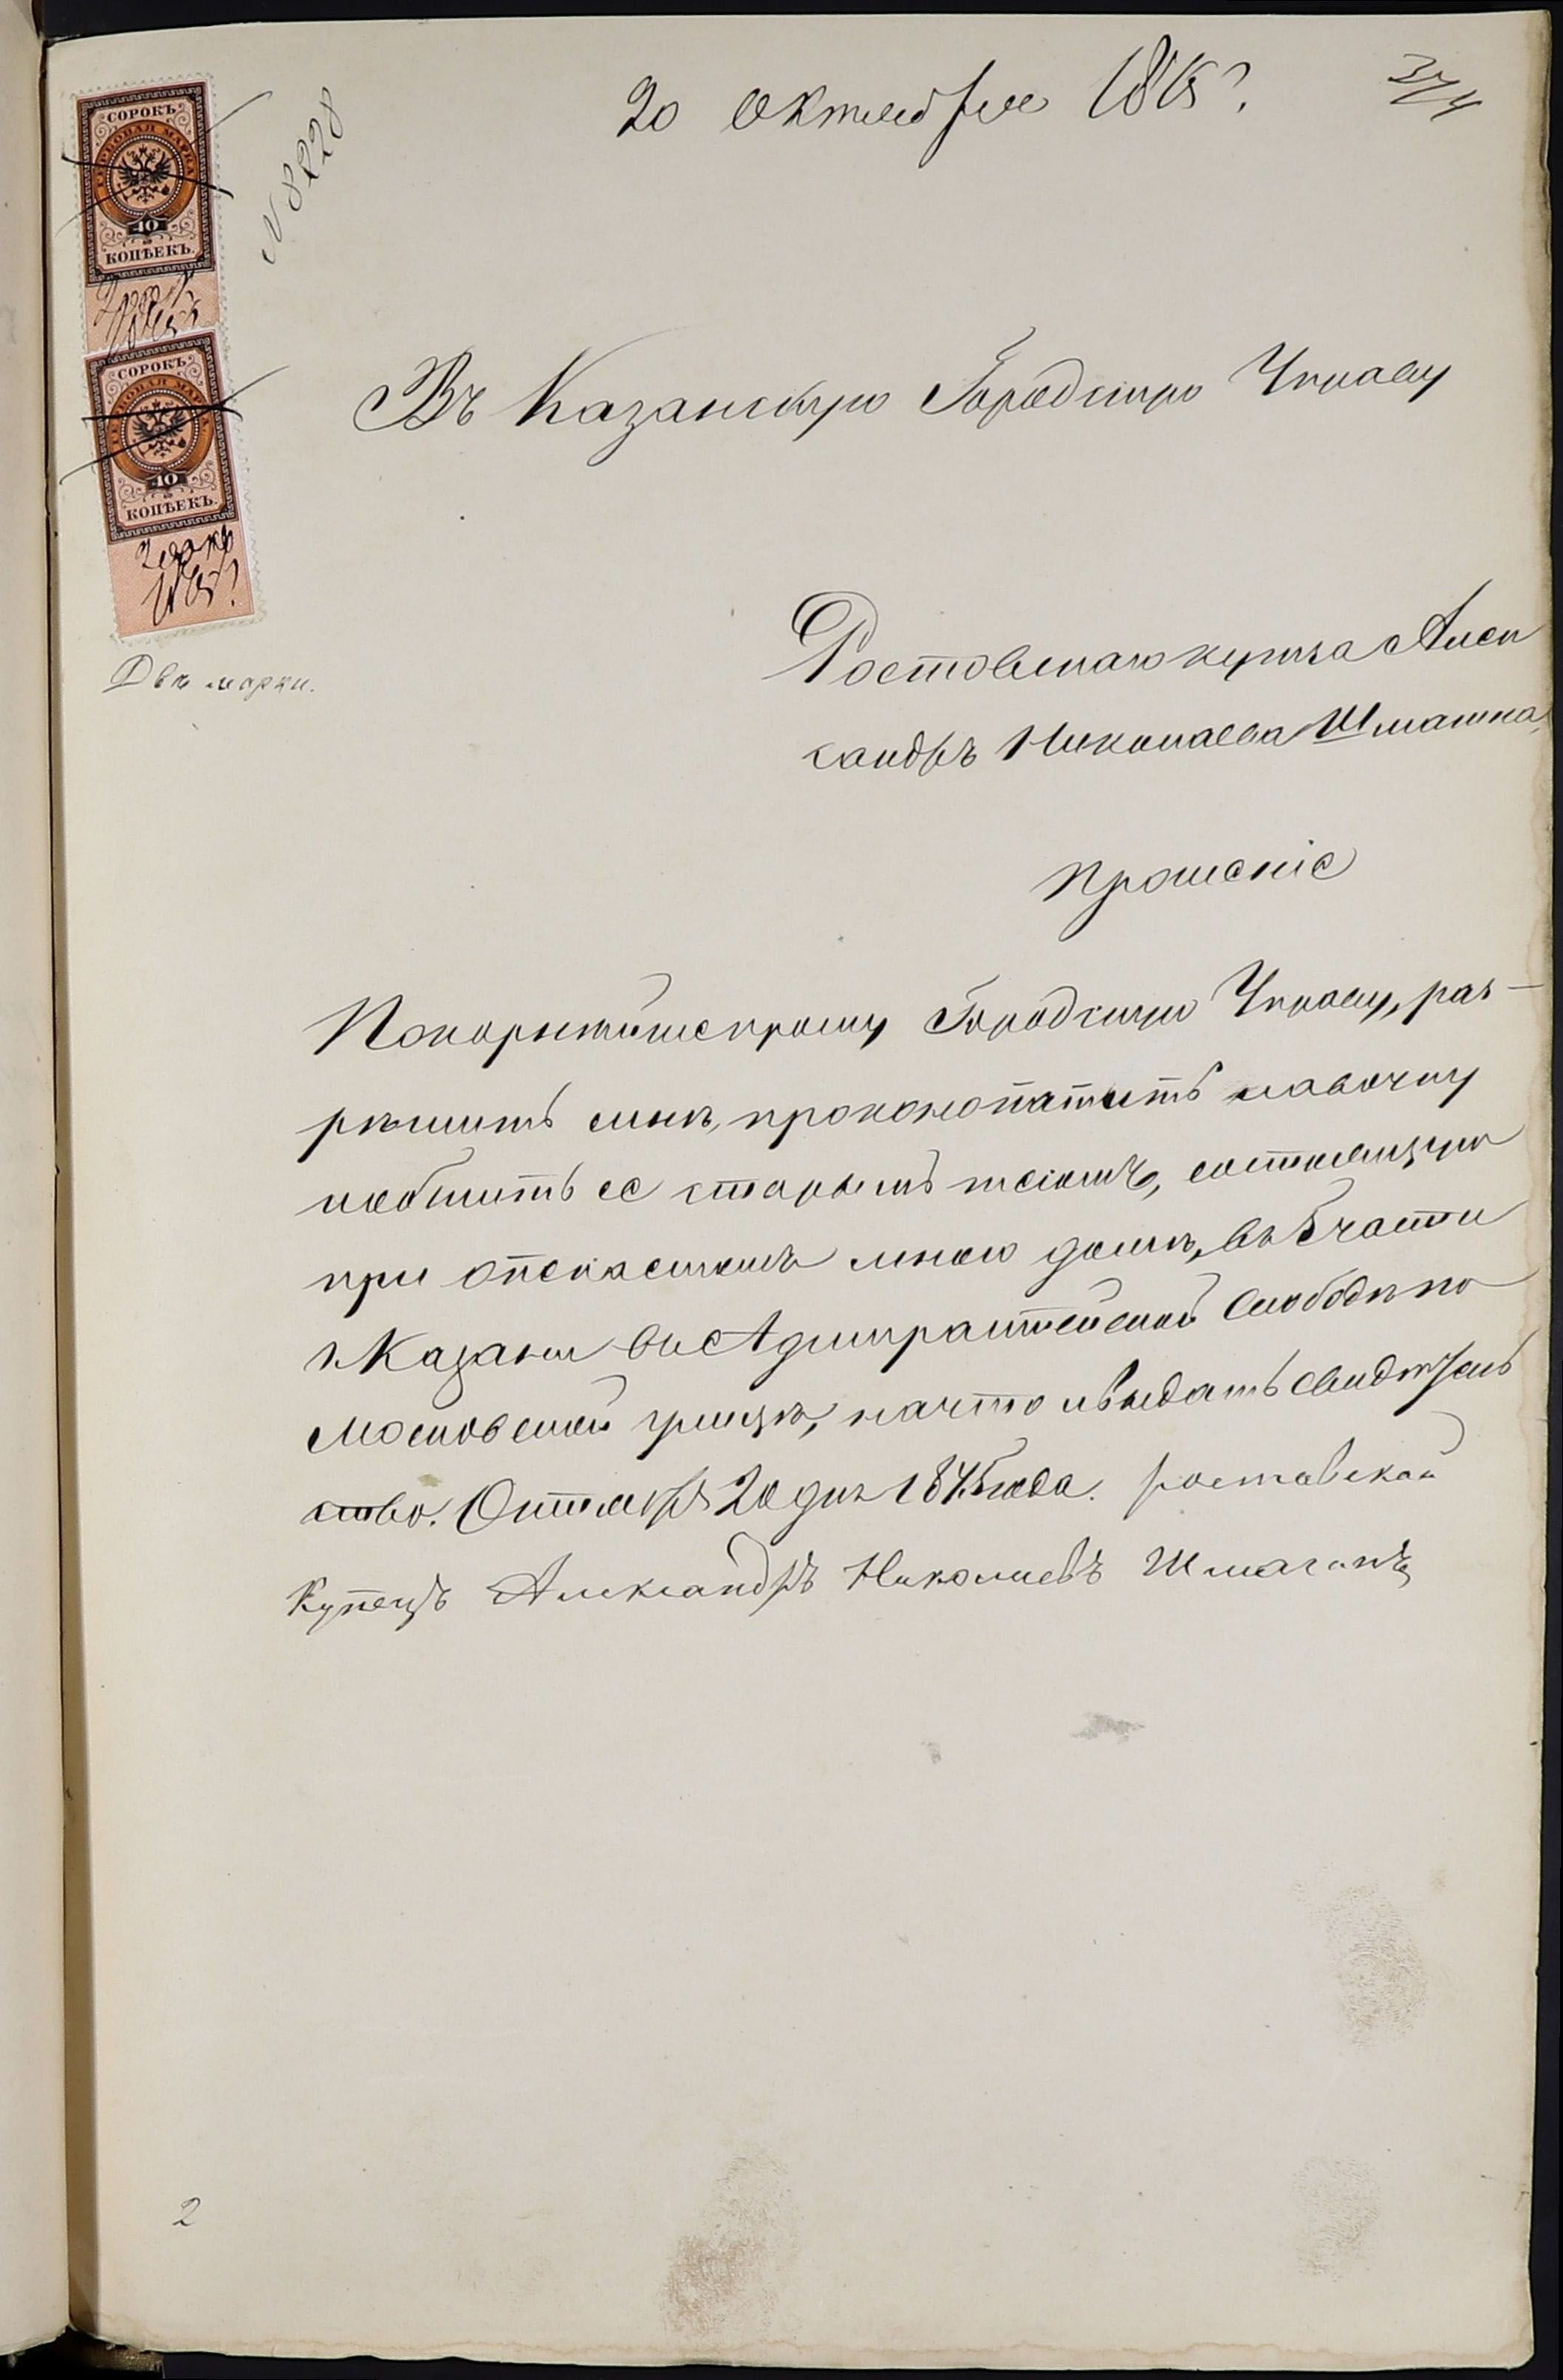 20 октября 1875 г.
374
СОРОКЪ
ГЕРБОВАЯ МАРКА
40
КОПѢЕКЪ.
№ 8228
СОРОКЪ
ГЕРБОВАЯ МАРКА
40
КОПѢЕКЪ.
Двѣ марки.
Въ Казанскую Городскую Управу
Ростовскаго купца Алек
сандръ Николаева
Прошеніе
Покорнѣйше прошу Городскую Управу, раз-
рѣшить мнѣ, проконопатить лавочку
и обшить ее старымъ тесомъ, состоящую
при мною домѣ, въ 5 части
г. Казани въ Адмиралтейской Слободѣ по
Московской улицѣ, на что и выдать свидѣтель
ство. Октября 20 дня 1875 года. ростовской
Купецъ Александръ Николаевъ
2